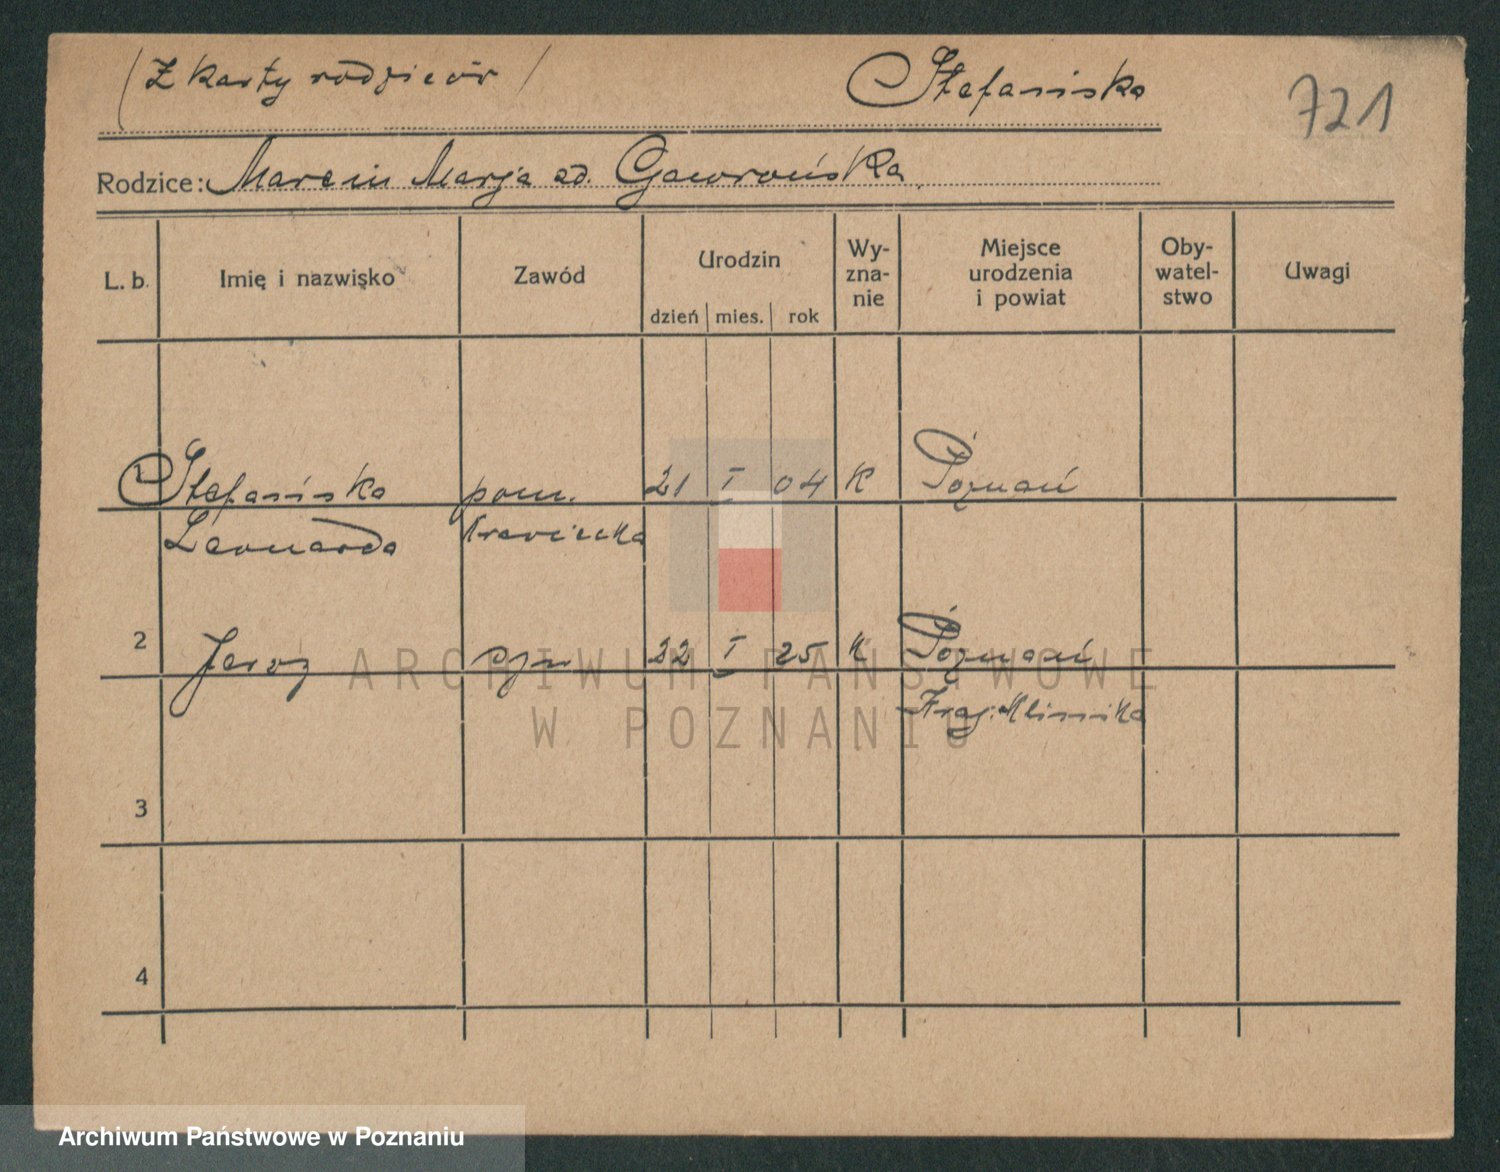 (Z karty rodziców) Stefańska 721
Rodzice: Marcin Marja zd. Gaworońska
L. b. Imię i nazwisko Zawód Urodzin dzień mies. rok Wyznanie Miejsce urodzenia i powiat Obywatelstwo Uwagi
1 Stefańska pom. 21 I 04 K Poznań
Leonarda krawiecka
2 Jerzy syn 22 I 25 K Poznań
Kraj. Klinika
3
4
ARCHIWUM PAŃSTWOWE
W POZNANIU
Archiwum Państwowe w Poznaniu